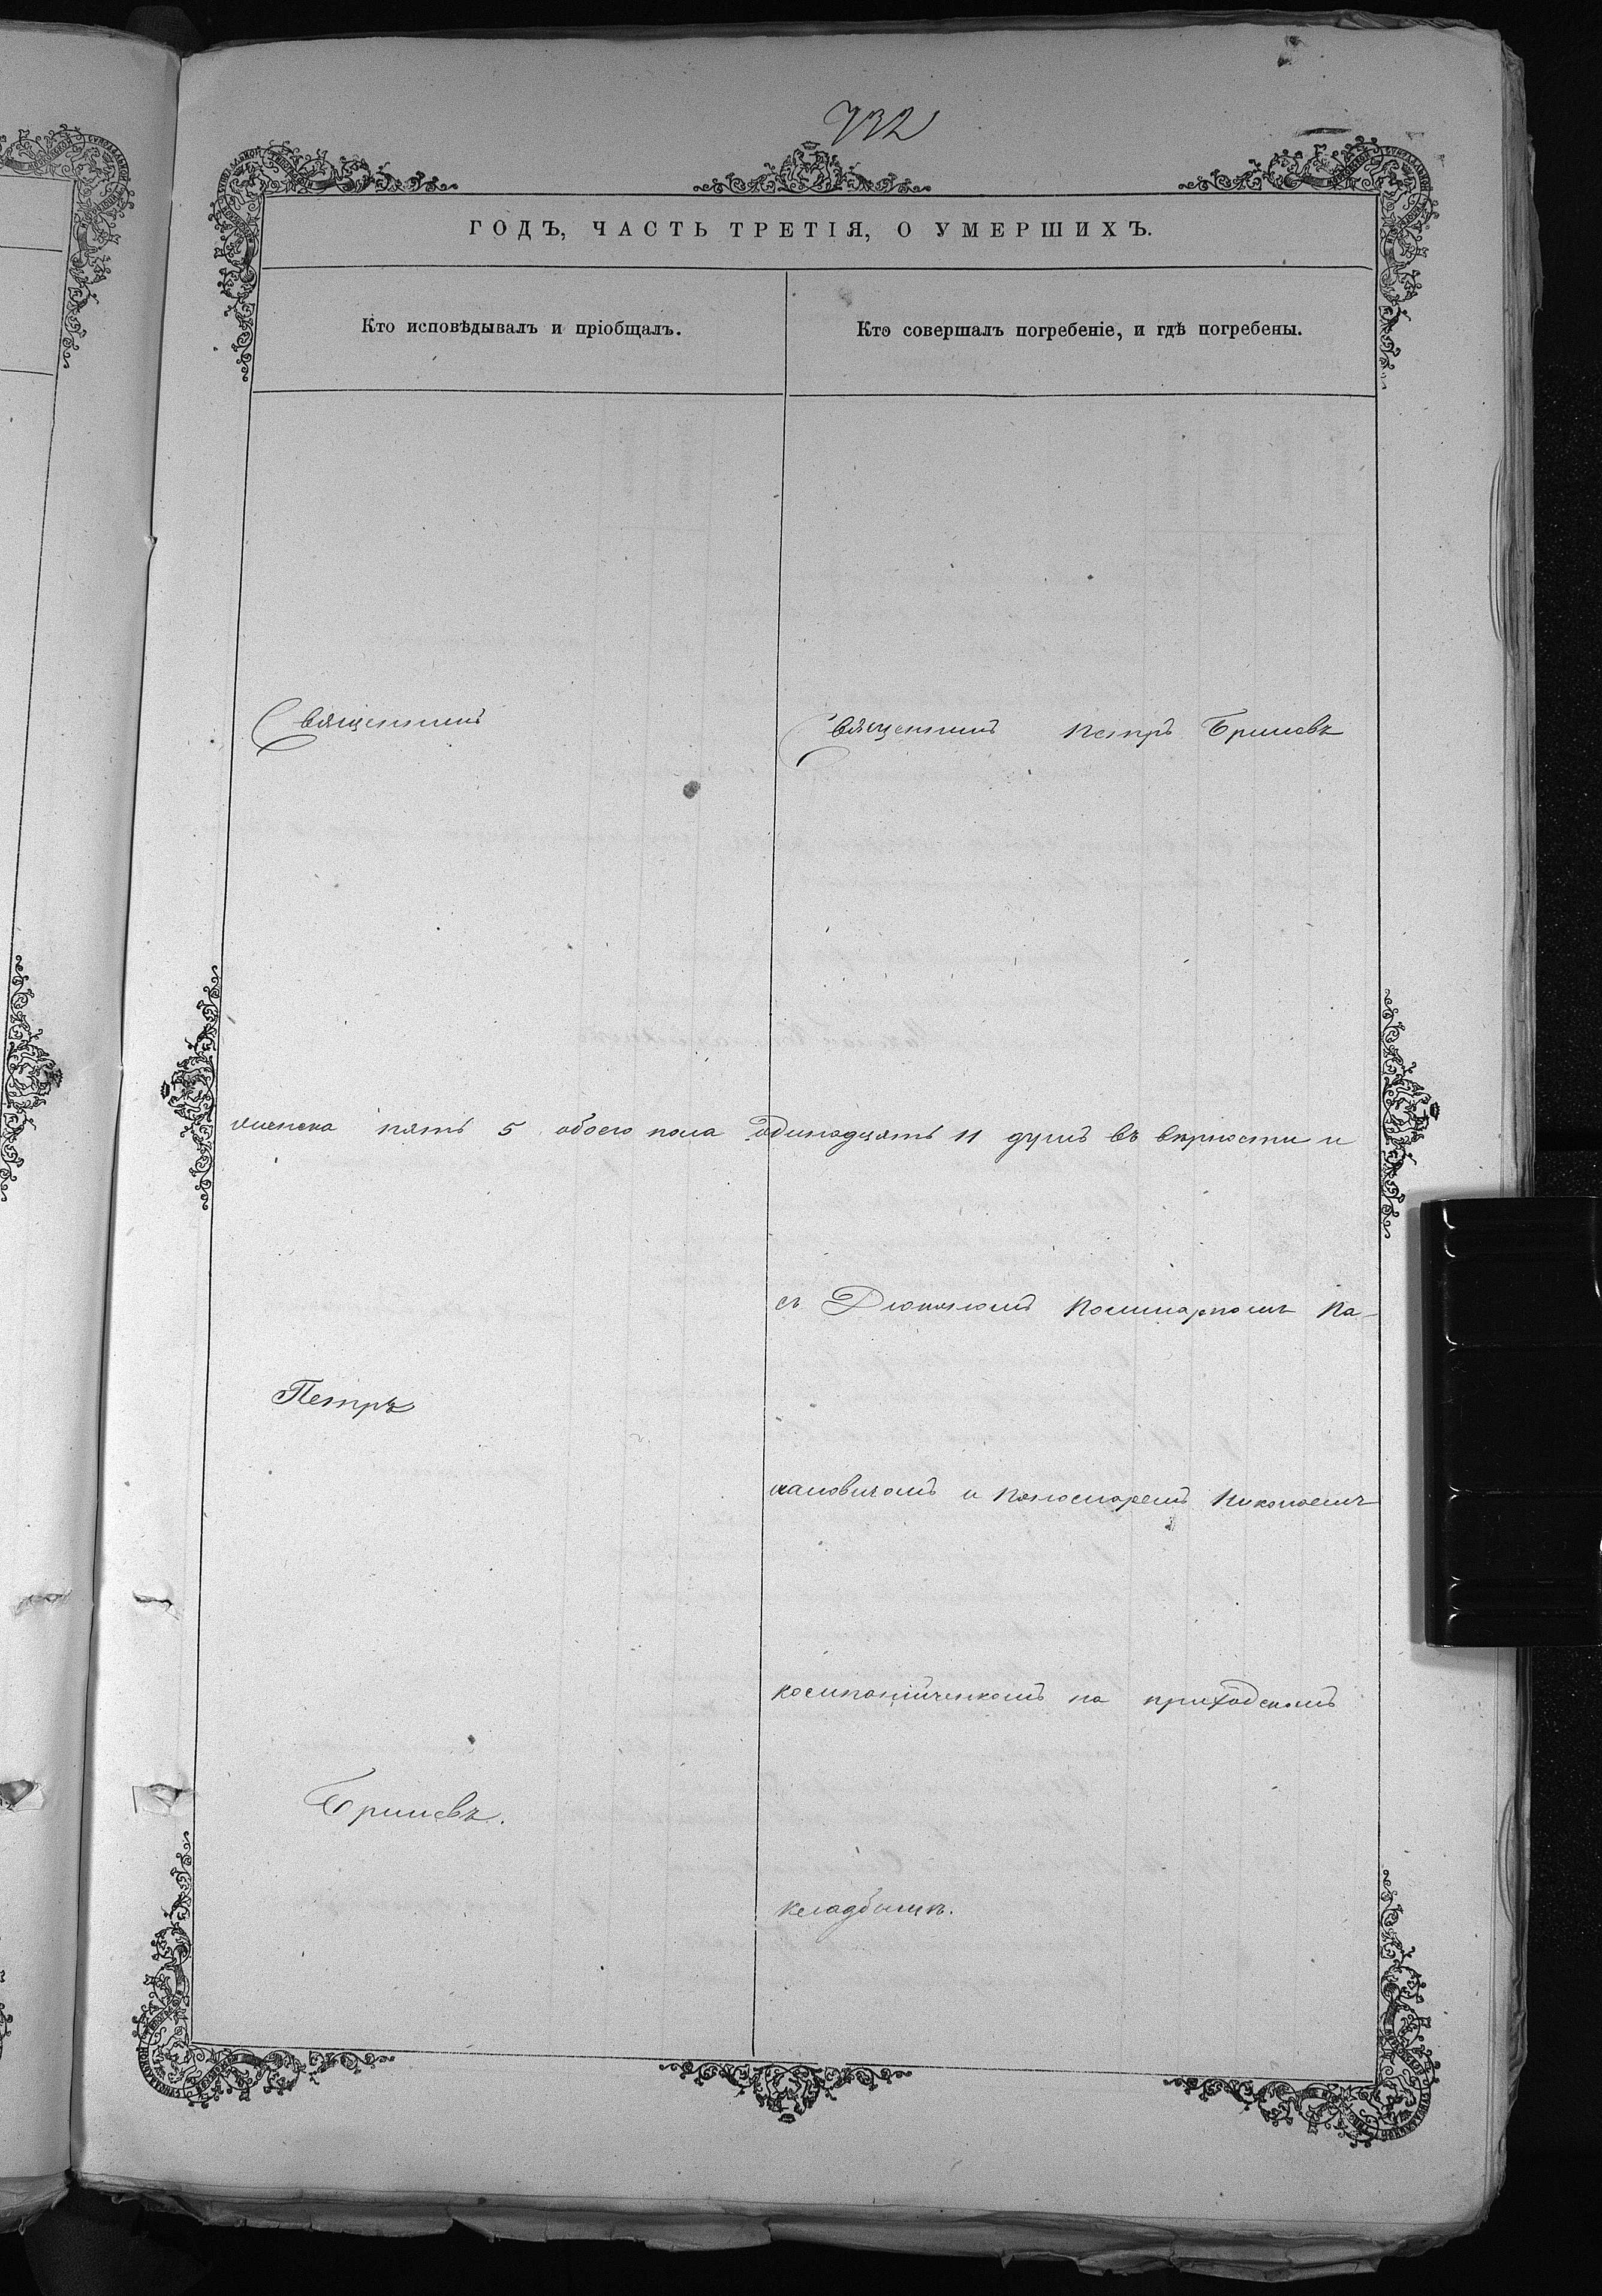 732
ГОДЪ, ЧАСТЬ ТРЕТІЯ, О УМЕРШИХЪ.
Кто исповѣдывалъ и пріобщалъ.
Кто совершалъ погребеніе, и гдѣ погребены.
Священникъ
Священникъ Петръ
женска пять 5 обоего пола одинадцять 11 душъ въ вѣрности и
съ Дьячкомъ Поликарпомъ Ка-
Петръ
и Пономаремъ Николаемъ
на приходскомъ
кладбищѣ.